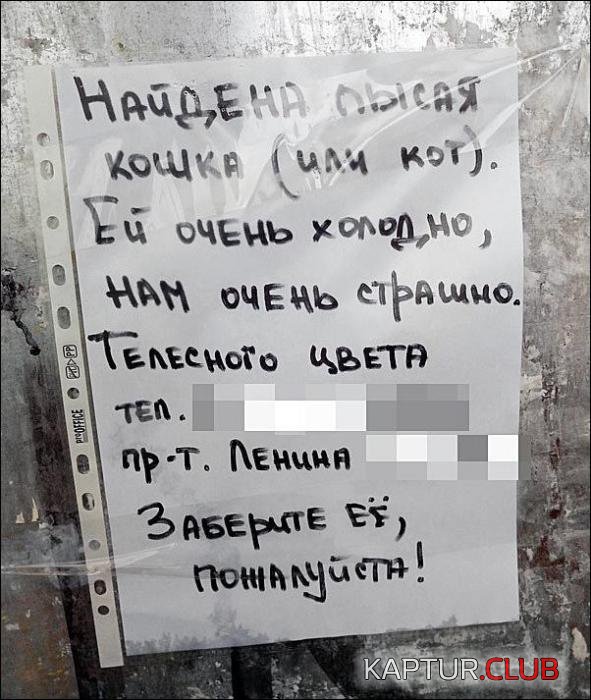 НАЙДЕНА ЛЫСАЯ
КОШКА (ИЛИ КОТ).
ЕЙ ОЧЕНЬ ХОЛОДНО,
НАМ ОЧЕНЬ СТРАШНО.
ТЕЛЕСНОГО ЦВЕТА
ТЕЛ.
ПР-Т. ЛЕНИНА
ЗАБЕРИТЕ ЕЁ,
ПОЖАЛУЙСТА!
proOFFICE
PP
KAPTUR.CLUB